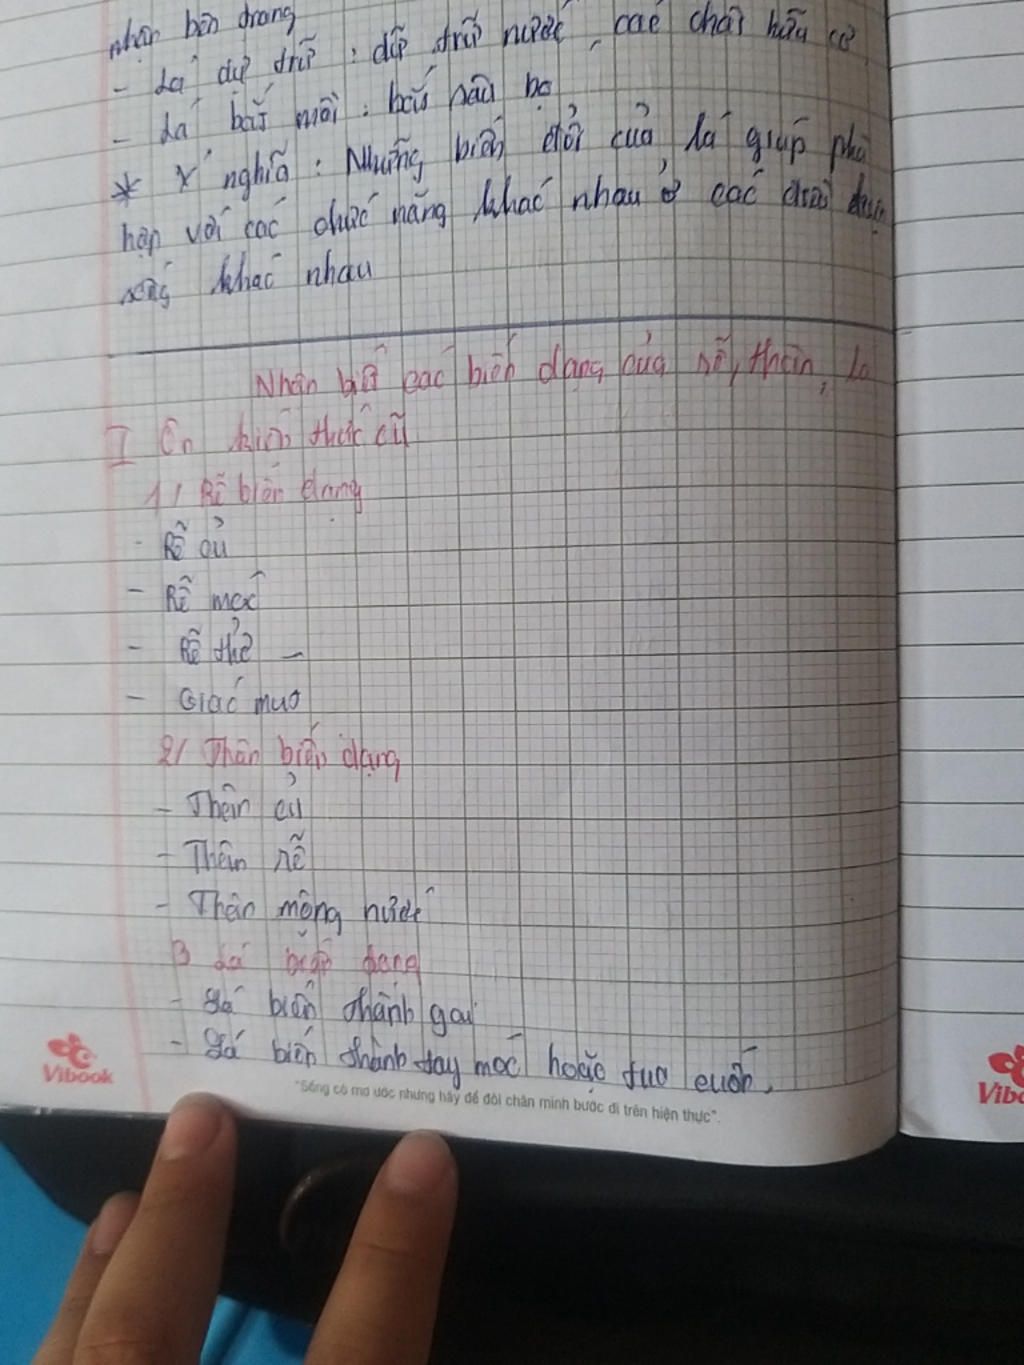 nhận bên trong
- Lá dự trữ : dự trữ nước, các chất hữu cơ
- Lá bắt mồi : bắt sâu bọ
* Ý nghĩa : Những biến đổi của lá giúp phù
hợp với các chức năng khác nhau ở các
sống khác nhau
Nhận biết các biến dạng của rễ, thân, lá
I Ôn kiến thức cũ
1/ Rễ biến dạng
- Rễ củ
- Rễ móc
- Rễ thở -
- Giác mut
2/ Thân biến dạng
- Thân củ
- Thân rễ
- Thân mộng nước
3 Lá biến dạng
- Lá biến thành gai
- Lá biến thành tay móc hoặc tua cuốn.
Vibook
"Sống có mơ ước nhưng hãy để đôi chân mình bước đi trên hiện thực".